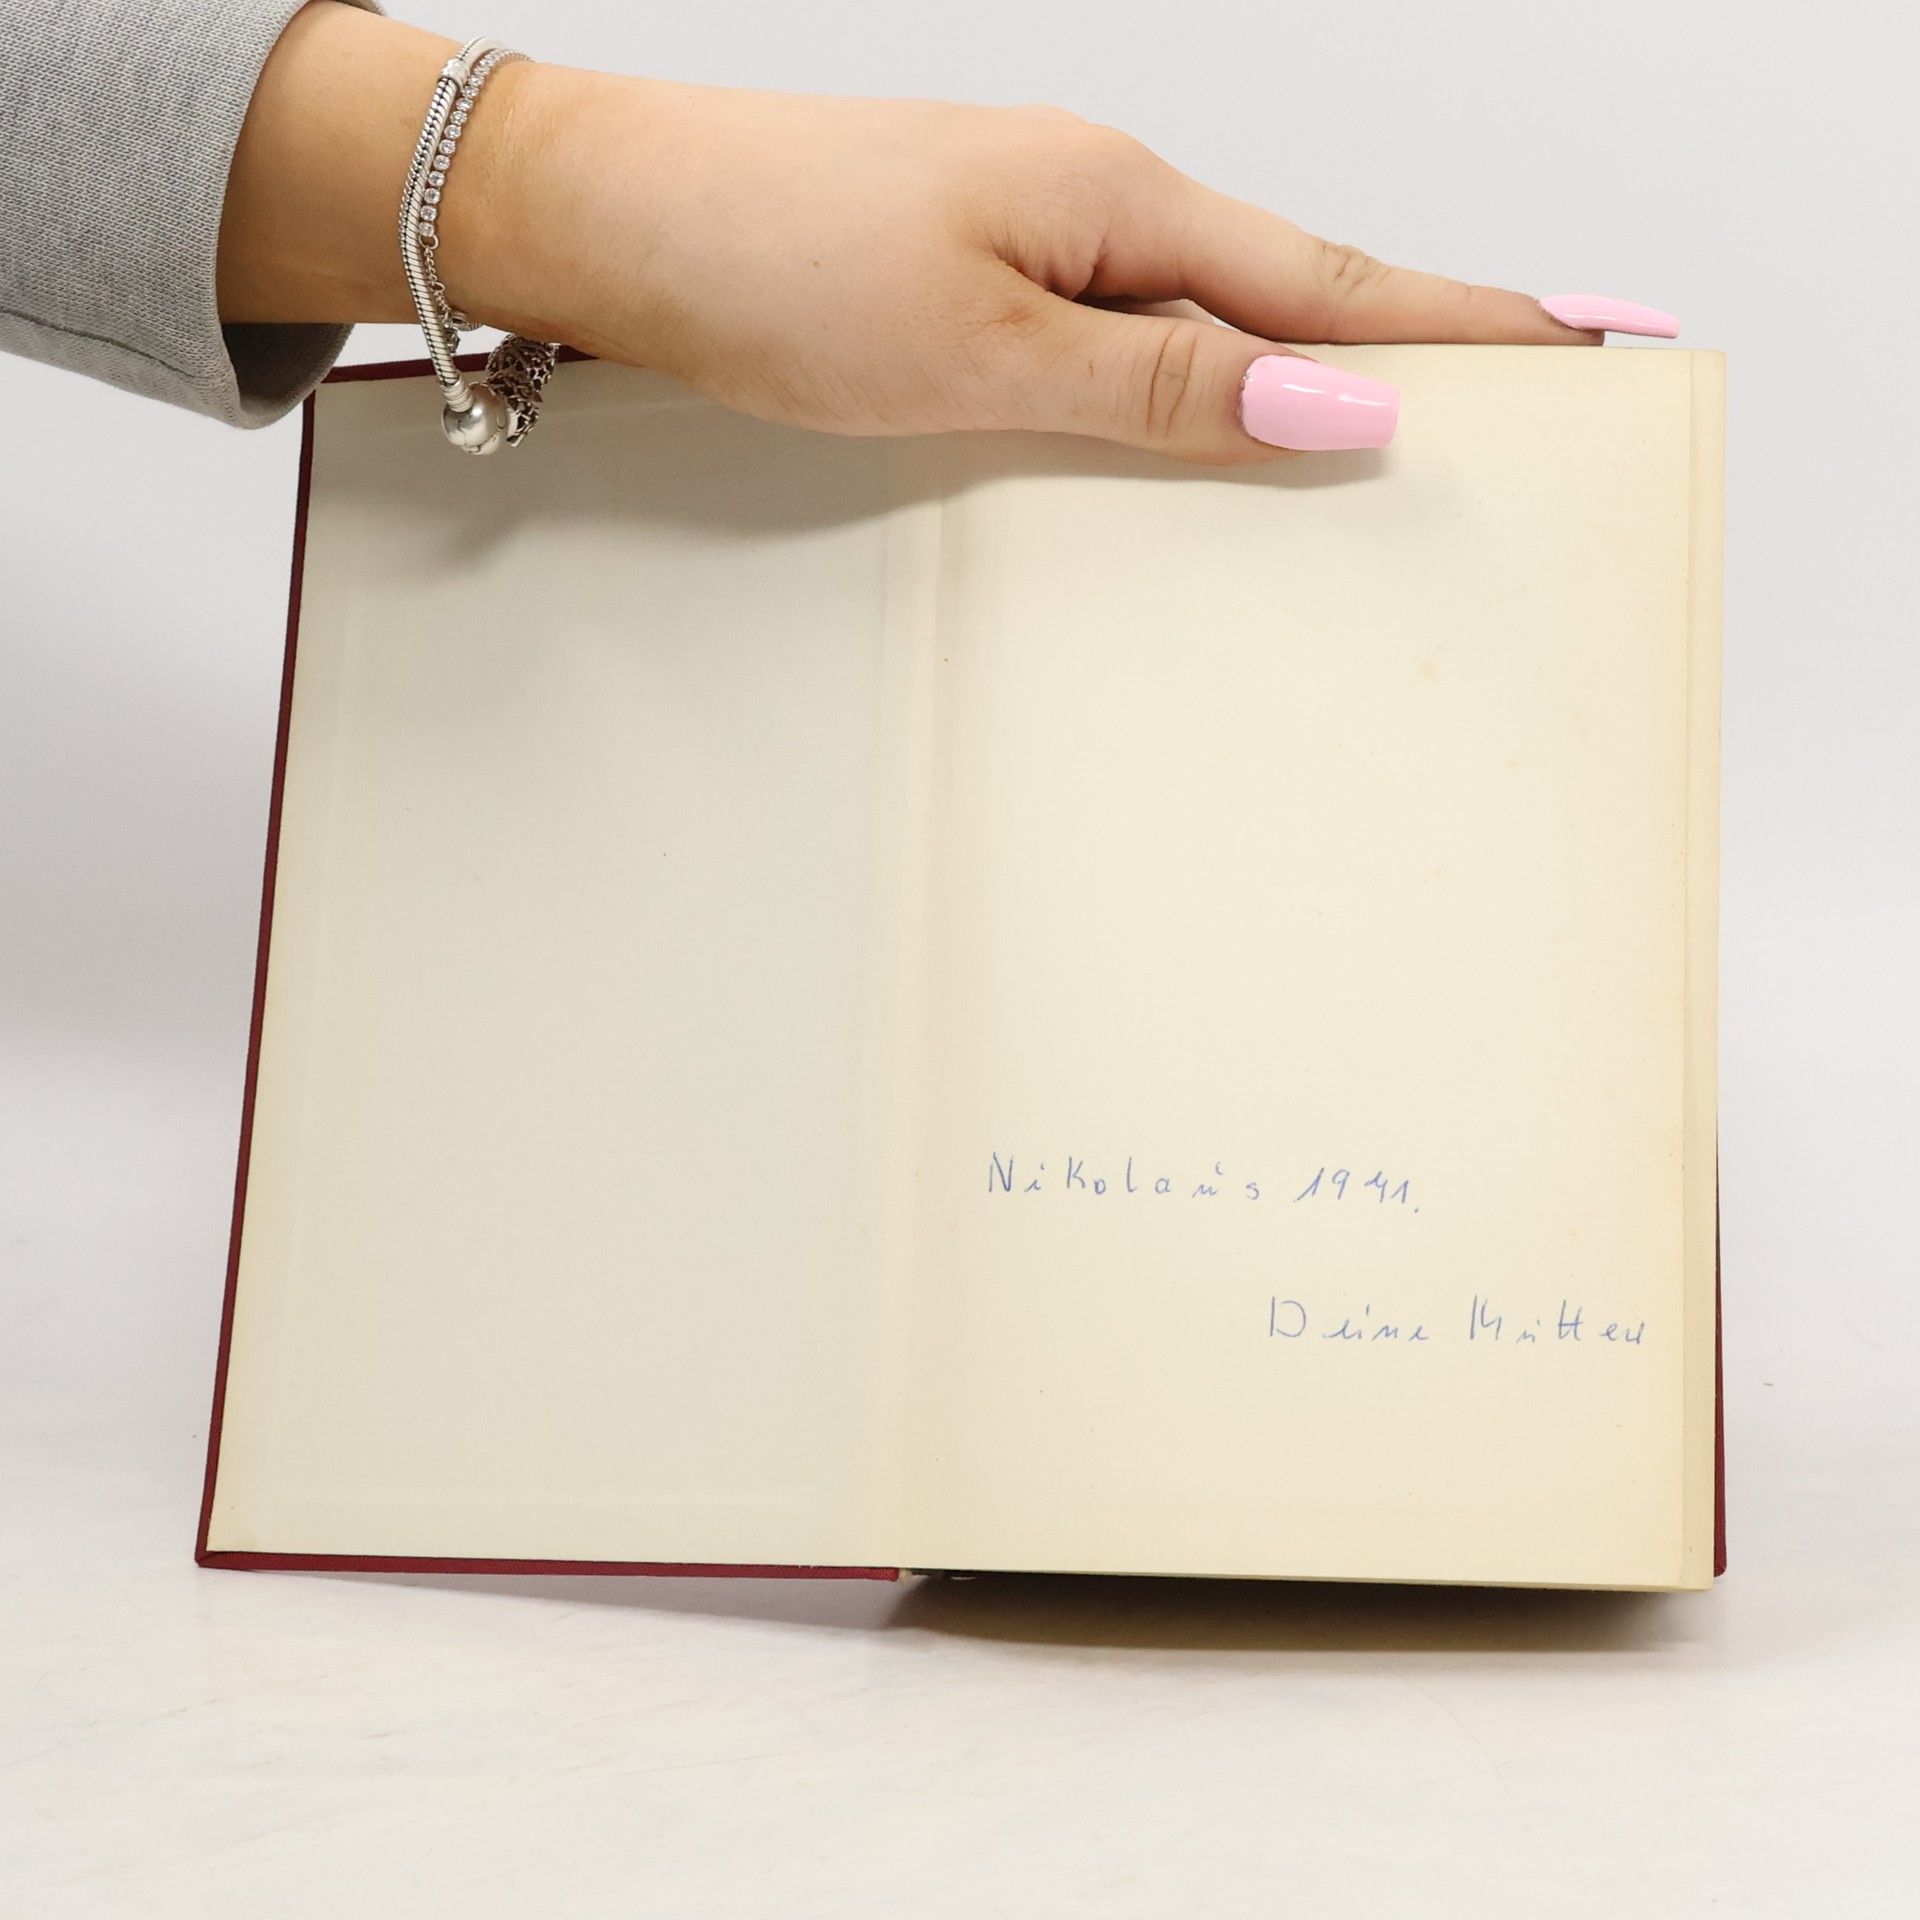 Nikolaus 1941.
Deine Mutter